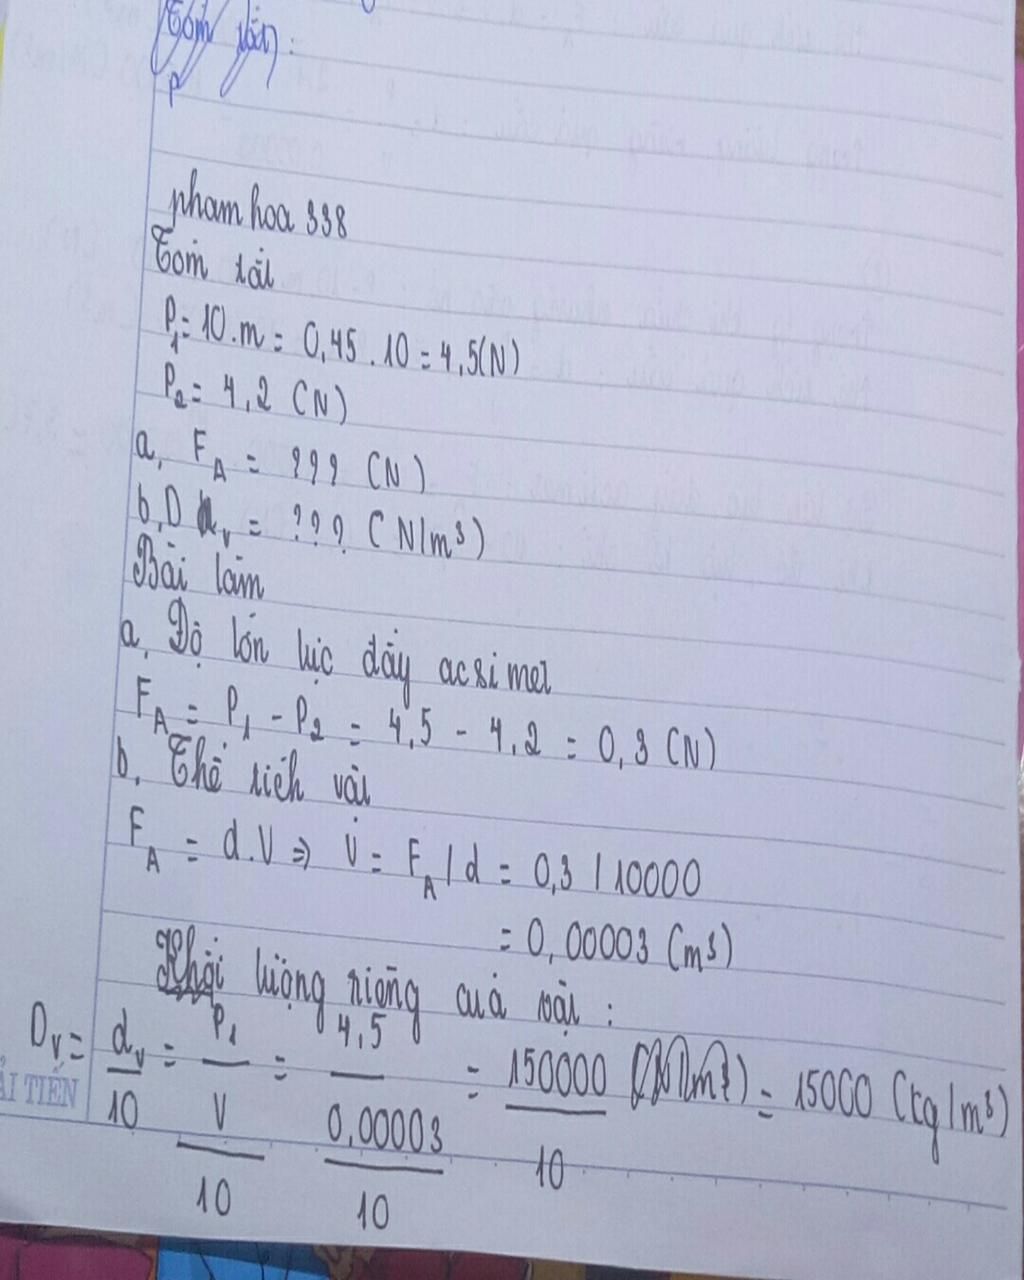 Tóm tắt:
P
phamhoa 338
Tóm tắt
P₁ = 10.m = 0,45 . 10 = 4,5(N)
P₂ = 4,2 (N)
a, F_A = ??? (N)
b, D_v = ??? (N/m³)
Bài làm
a, Độ lớn lực đẩy acsimet
F_A = P₁ - P₂ = 4,5 - 4,2 = 0,3 (N)
b, Thể tích vật
F_A = d.V => V = F_A / d = 0,3 / 10000
= 0,00003 (m³)
Khối lượng riêng của vật :
D_v = d_v/10 = (P₁/V)/10 = (4,5/0,00003)/10 = 150000/10 = 15000 (kg/m³)
ẢI TIẾN